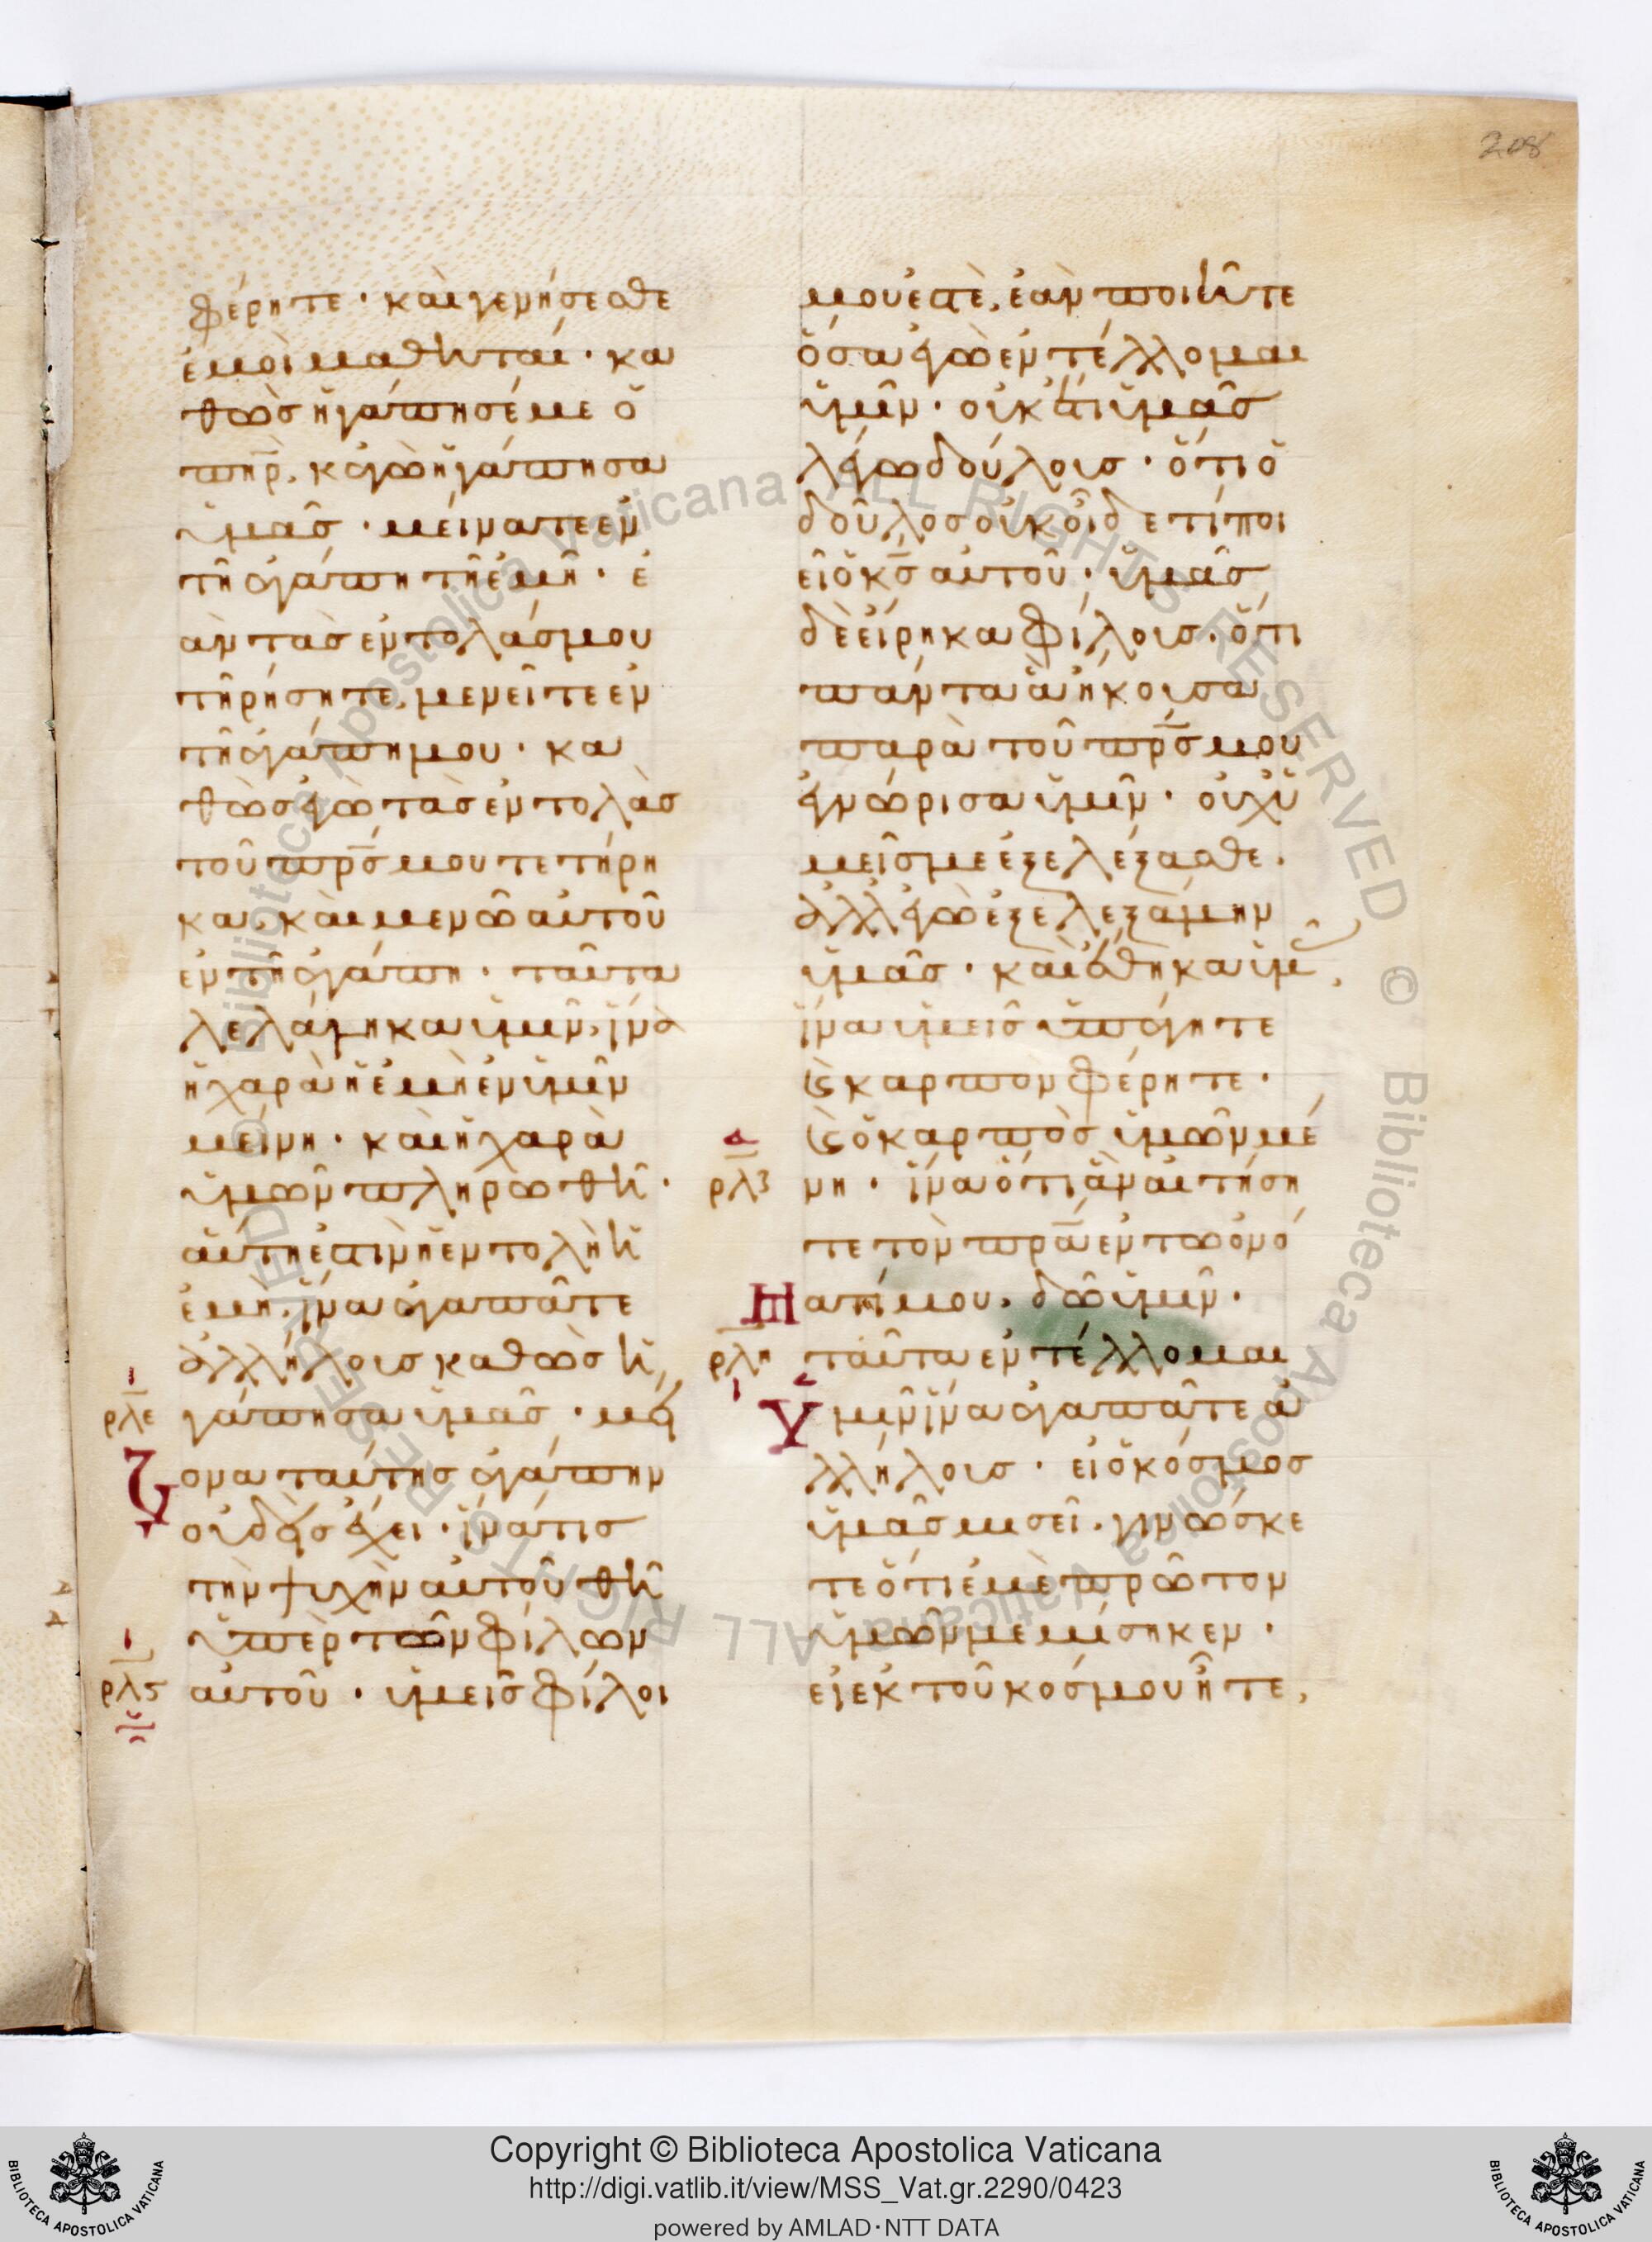 208
φέρητε · καὶ γενήσεσθε
ἐμοὶ μαθηταί · κα
θὼς ἠγάπησέ με ὁ
πηρ, κἀγὼ ἠγάπησα
ὑμᾶς · μείνατε ἐν
τῆ ἀγάπη τῆ ἐμῆ · ἐ
ὰν τὰς ἐντολάς μου
τηρήσητε, μενεῖτε ἐν
τῆ ἀγάπη μου · κα
θὼς ἐγὼ τὰς ἐντολὰς
τοῦ πρς μου τετήρη
κα, καὶ μενῶ αὐτοῦ
ἐν τῆ ἀγάπη · ταῦτα
λελάληκα ὑμῖν, ἵνα
ἡ χαρὰ ἡ ἐμὴ ἐν ὑμῖν
μείνη · καὶ ἡ χαρὰ
ὑμῶν πληρωθῆ ·
αὕτη ἐστὶν ἡ ἐντολὴ ἡ
ἐμὴ, ἵνα ἀγαπᾶτε
ἀλλήλους καθὼς ἠ
ρλε γάπησα ὑμᾶς · μεί
ζονα ταύτης ἀγάπην
οὐδεὶς ἔχει · ἵνα τις
τὴν ψυχὴν αὐτοῦ θῆ
ὑπὲρ τῶν φίλων
ρλς αὐτοῦ · ὑμεῖς φίλοι
μου ἐστὲ, ἐὰν ποιῆτε
ὅσα ἐγὼ ἐντέλλομαι
ὑμῖν · οὐκέτι ὑμᾶς
λέγω δούλους · ὅτι ὁ
δοῦλος οὐκ οἶδε τί ποι
εῖ ὁ κς αὐτοῦ · ὑμᾶς
δὲ εἴρηκα φίλους · ὅτι
πάντα ἃ ἤκουσα
παρὰ τοῦ πρς μου
ἐγνώρισα ὑμῖν · οὐχ ὑ
μεῖς με ἐξελέξασθε ·
ἀλλ ἐγὼ ἐξελεξάμην
ὑμᾶς · καὶ ἔθηκα ὑμᾶς,
ἵνα ὑμεῖς ὑπάγητε
ϗ καρπὸν φέρητε ·
ϗ ὁ καρπὸς ὑμῶν μέ
ρλζ νη · ἵνα ὅτι ἂν αἰτήση
τε τὸν πρα ἐν τῶ ὀνό
ματί μου, δῶ ὑμῖν ·
ρλη ταῦτα ἐντέλλομαι
Ὑμῖν ἵνα ἀγαπᾶτε ἀ
λλήλους · εἰ ὁ κόσμος
ὑμᾶς μισεῖ, γινώσκε
τε ὅτι ἐμὲ πρῶτον
ὑμῶν μεμίσηκεν ·
εἰ ἐκ τοῦ κόσμου ἦτε,
Copyright © Biblioteca Apostolica Vaticana
http://digi.vatlib.it/view/MSS_Vat.gr.2290/0423
powered by AMLAD·NTT DATA
BIBLIOTECA APOSTOLICA VATICANA
BIBLIOTECA APOSTOLICA VATICANA
© Biblioteca Apostolica Vaticana ALL RIGHTS RESERVED
© Biblioteca Apostolica Vaticana ALL RIGHTS RESERVED